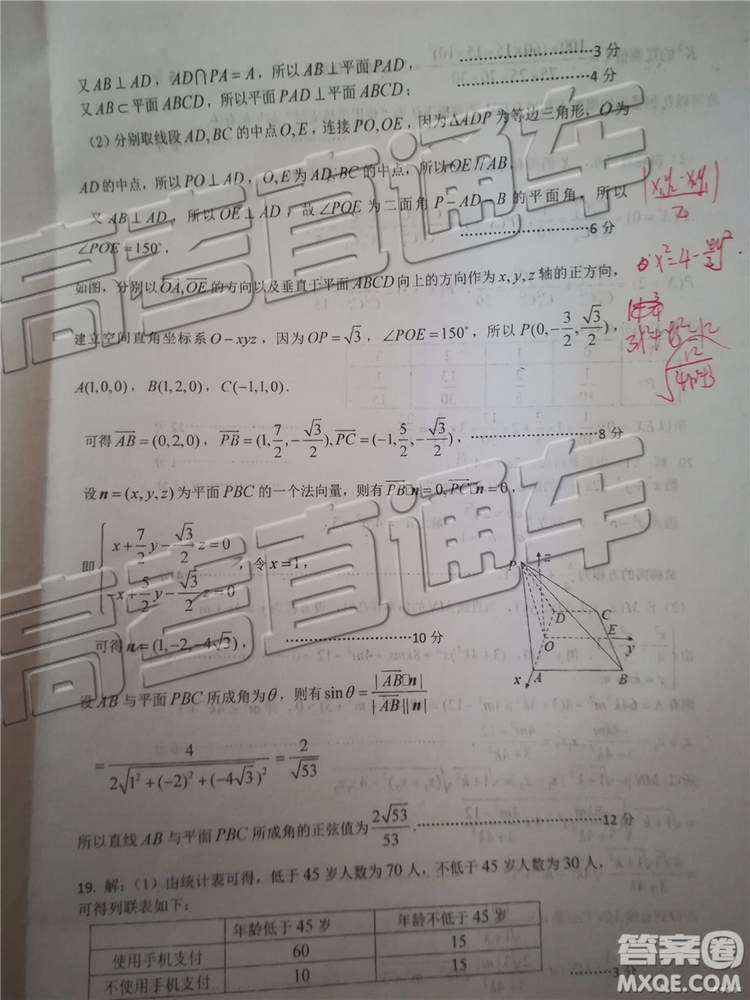 又 AB⊥AD，AD∩PA=A，所以 AB⊥平面 PAD， ……………………3分
又 AB⊂平面 ABCD，所以平面 PAD⊥平面 ABCD； ……………………4分
（2）分别取线段 AD,BC 的中点 O,E，连接 PO,OE，因为 △ADP 为等边三角形，O 为
AD 的中点，所以 PO⊥AD，O,E 为 AD,BC 的中点，所以 OE∥AB，
又 AB⊥AD，所以 OE⊥AD，故 ∠POE 为二面角 P-AD-B 的平面角，所以
∠POE=150°， ……………………6分
如图，分别以 OA,OE 的方向以及垂直于平面 ABCD 向上的方向作为 x,y,z 轴的正方向，
建立空间直角坐标系 O-xyz，因为 OP=√3，∠POE=150°，所以 P(0,-3/2,√3/2)，
A(1,0,0)，B(1,2,0)，C(-1,1,0).
可得 AB=(0,2,0)，PB=(1,7/2,-√3/2),PC=(-1,5/2,-√3/2)，……………………8分
设 n=(x,y,z) 为平面 PBC 的一个法向量，则有 PB□n=0,PC□n=0，
即 { x+7/2y-√3/2z=0
-x+5/2y-√3/2z=0 ，令 x=1，
可得 n=(1,-2,-4√3)， ……………………10分
P z D C E O y x A B
设 AB 与平面 PBC 所成角为 θ，则有 sinθ=|AB□n|/|AB||n|
=4/2√1²+(-2)²+(-4√3)²=2/√53
所以直线 AB 与平面 PBC 所成角的正弦值为 2√53/53.……………………12分
19. 解：（1）由统计表可得，低于 45 岁人数为 70 人，不低于 45 岁人数为 30 人，
可得列联表如下：
年龄低于 45 岁 年龄不低于 45 岁
使用手机支付 60 15
不使用手机支付 10 15
………3分
高考直通车
高考直通车
答案圈
MXQE.COM